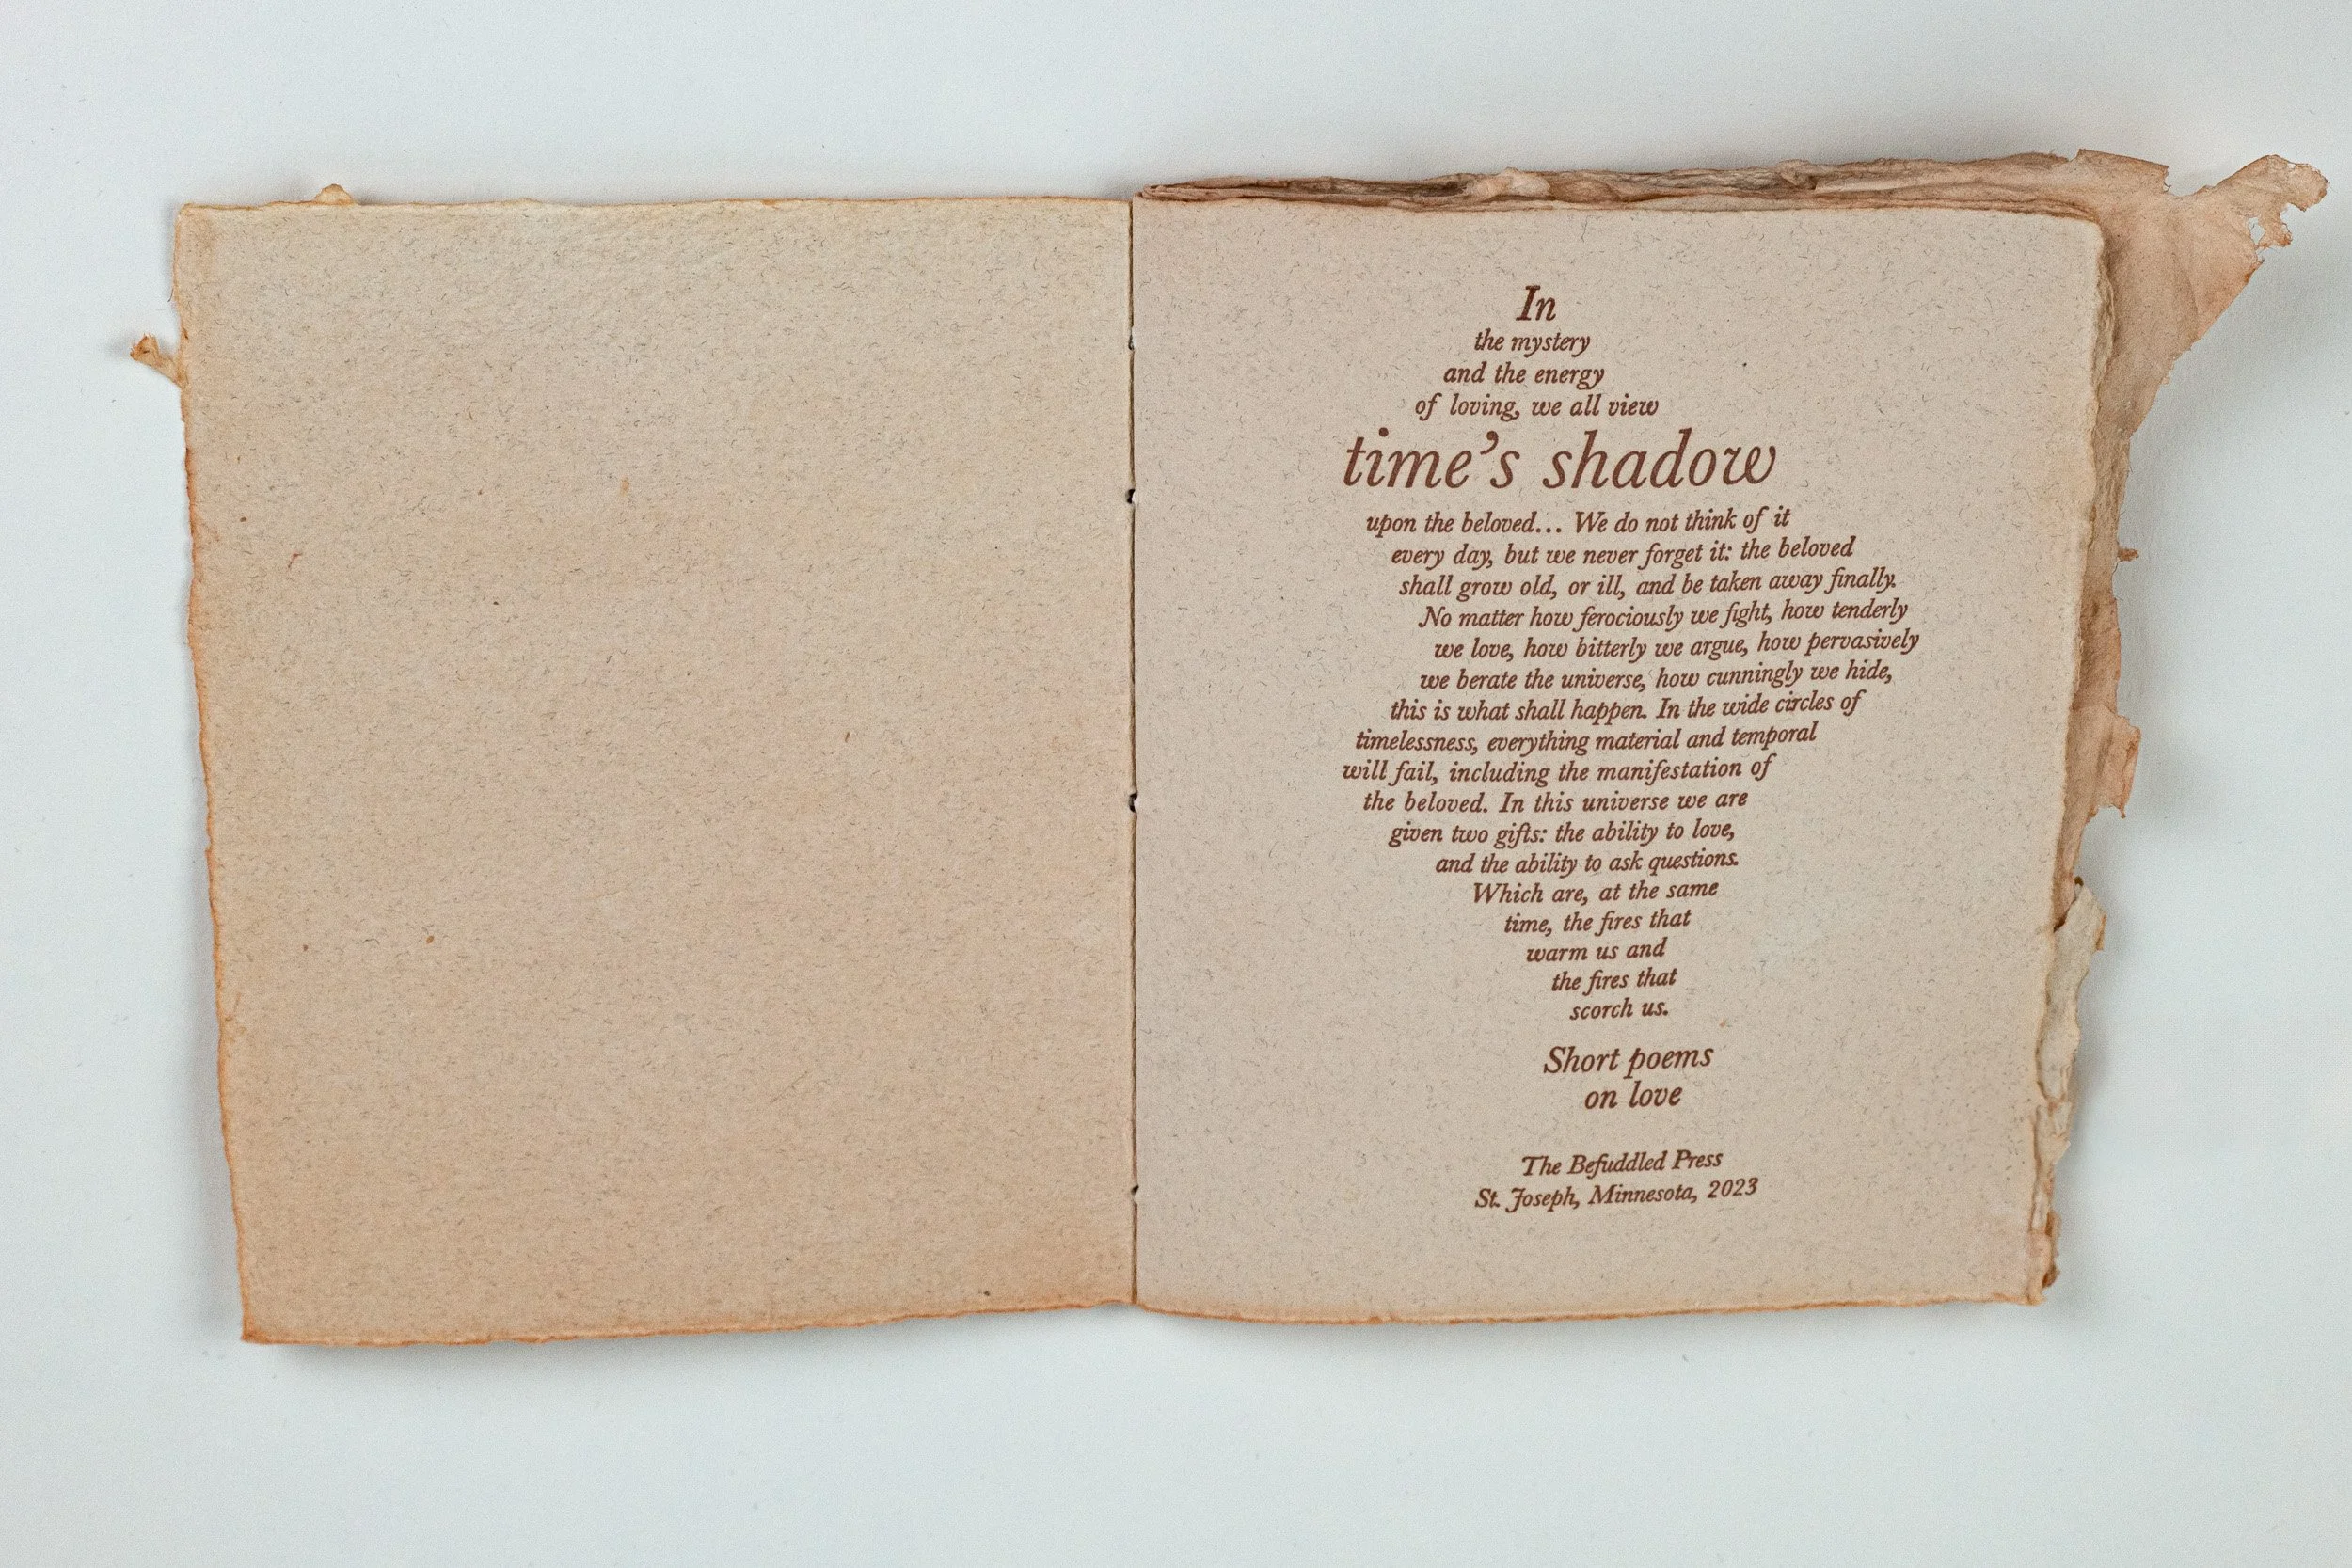 In
the mystery
and the energy
of loving, we all view
time's shadow
upon the beloved... We do not think of it
every day, but we never forget it: the beloved
shall grow old, or ill, and be taken away finally.
No matter how ferociously we fight, how tenderly
we love, how bitterly we argue, how pervasively
we berate the universe, how cunningly we hide,
this is what shall happen. In the wide circles of
timelessness, everything material and temporal
will fail, including the manifestation of
the beloved. In this universe we are
given two gifts: the ability to love,
and the ability to ask questions.
Which are, at the same
time, the fires that
warm us and
the fires that
scorch us.
Short poems
on love
The Befuddled Press
St. Joseph, Minnesota, 2023